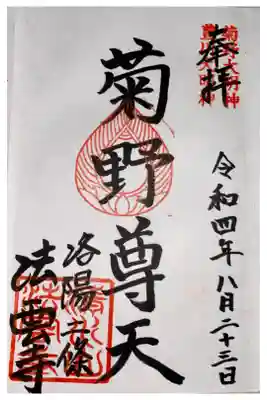 奉拝
令和四年八月二十三日
菊野尊天
洛陽二條
法雲寺